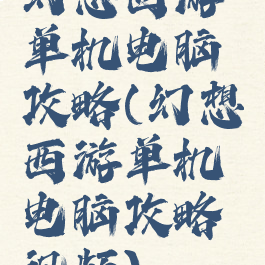 幻想西游
单机电脑
攻略(幻想
西游单机
电脑攻略
视频)